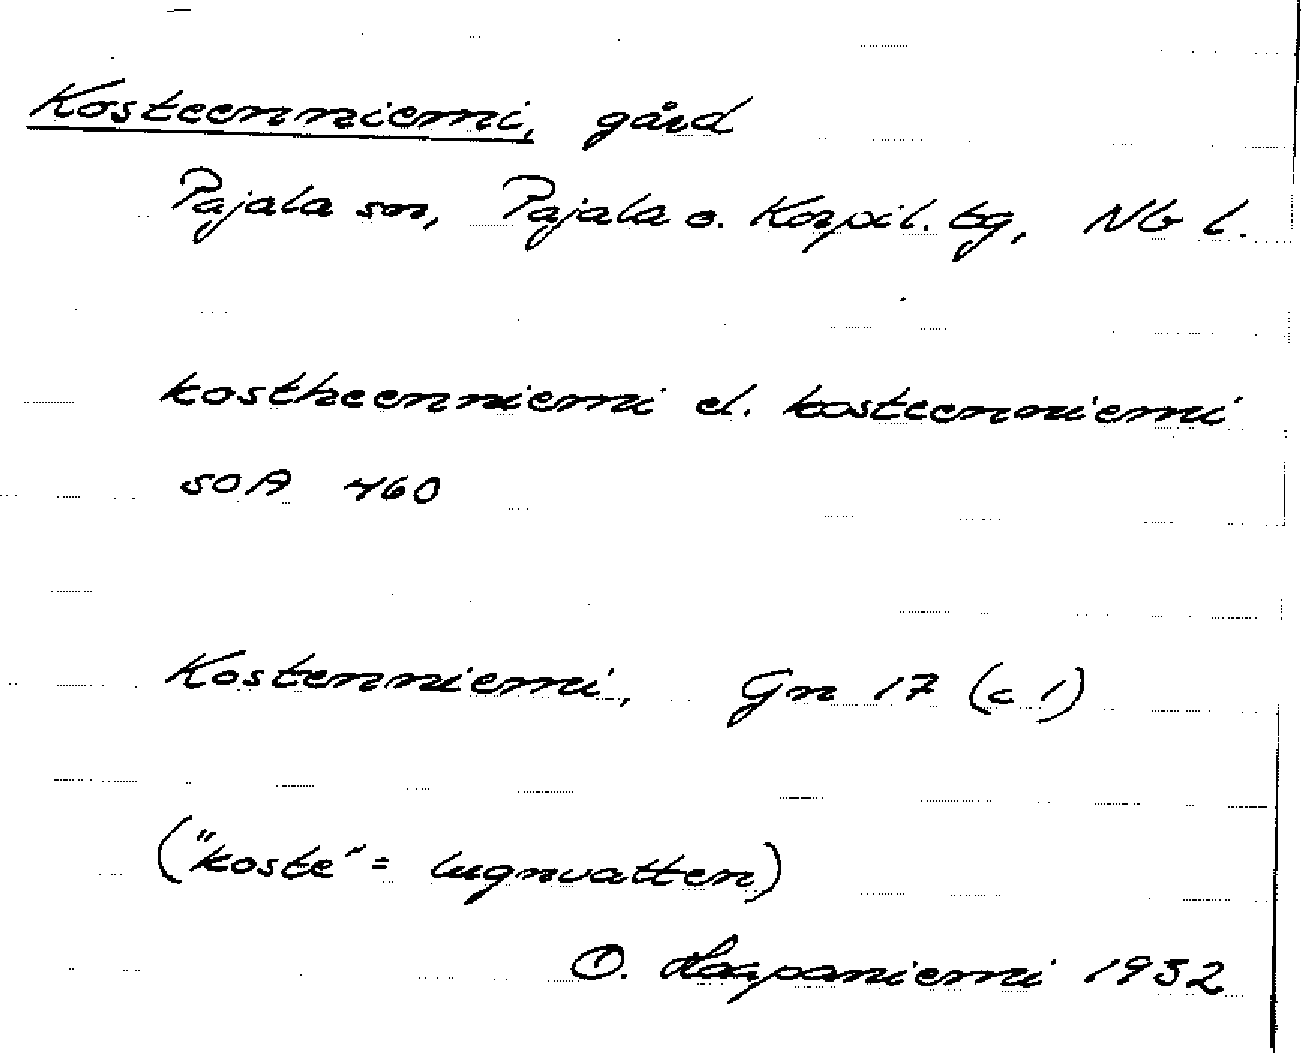 Kosteenniemi, gård
Pajala sn, Pajala o. Korpil. tg, NB l.
kostheenniemi el. kosteenniemi
SOA 460
Kostenniemi, Gn 17 (c 1)
("koste" = lugnvatten)
O. Haapaniemi 1932